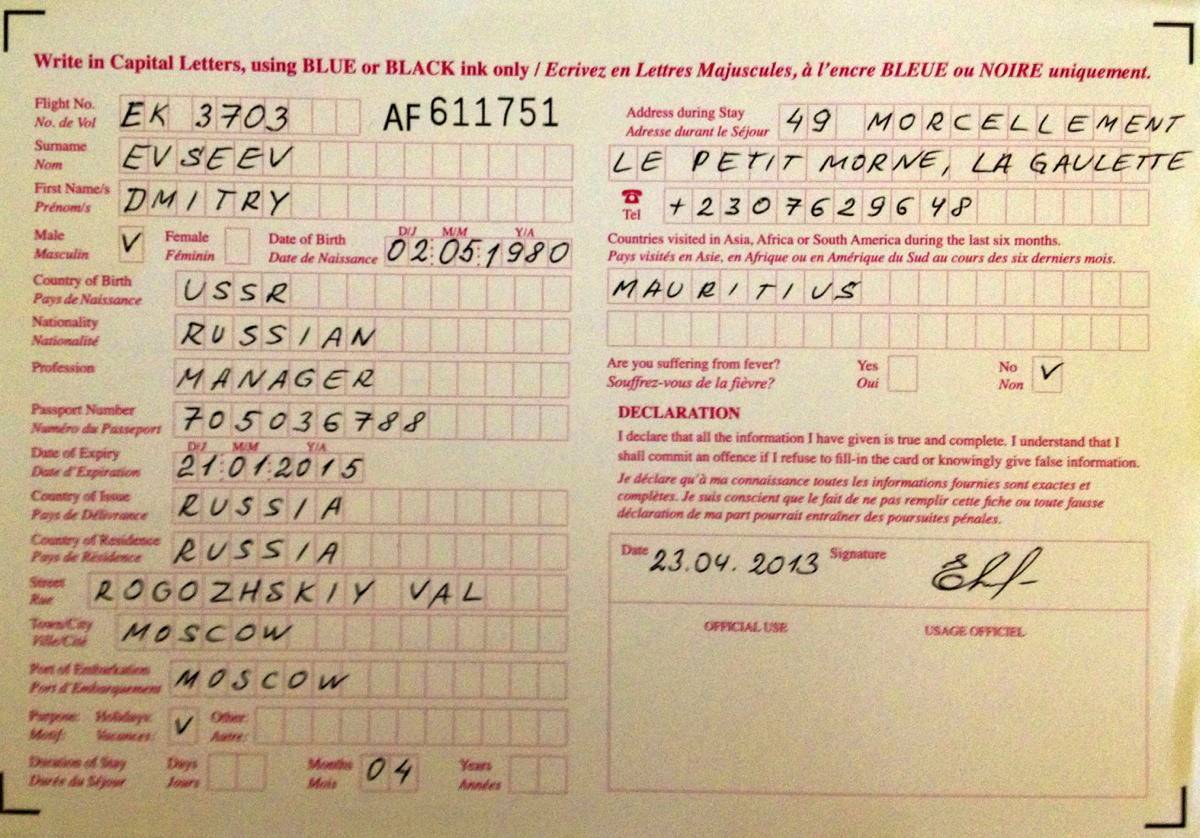 Write in Capital Letters, using BLUE or BLACK ink only / Ecrivez en Lettres Majuscules, à l'encre BLEUE ou NOIRE uniquement.
Flight No.
No. de Vol
EK 3703
AF 611751
Surname
Nom
EVSEEV
First Name/s
Prénom/s
DMITRY
Male
Masculin
V
Female
Féminin
Date of Birth
Date de Naissance
D/J M/M Y/A
02.05.1980
Country of Birth
Pays de Naissance
USSR
Nationality
Nationalité
RUSSIAN
Profession
MANAGER
Passport Number
Numéro du Passeport
705036788
Date of Expiry
Date d'Expiration
D/J M/M Y/A
21.01.2015
Country of Issue
Pays de Délivrance
RUSSIA
Country of Residence
Pays de Résidence
RUSSIA
Street
Rue
ROGOZHSKIY VAL
Town/City
Ville/Cité
MOSCOW
Port of Embarkation
Port d'Embarquement
MOSCOW
Purpose: Holidays:
Motif: Vacances:
V
Other:
Autre:
Duration of Stay
Durée du Séjour
Days
Jours
Months
Mois
04
Years
Années
Address during Stay
Adresse durant le Séjour
49 MORCELLEMENT
LE PETIT MORNE, LA GAULETTE
Tel
+2307629648
Countries visited in Asia, Africa or South America during the last six months.
Pays visités en Asie, en Afrique ou en Amérique du Sud au cours des six derniers mois.
MAURITIUS
Are you suffering from fever?
Souffrez-vous de la fièvre?
Yes
Oui
No
Non
V
DECLARATION
I declare that all the information I have given is true and complete. I understand that I
shall commit an offence if I refuse to fill-in the card or knowingly give false information.
Je déclare qu'à ma connaissance toutes les informations fournies sont exactes et
complètes. Je suis conscient que le fait de ne pas remplir cette fiche ou toute fausse
déclaration de ma part pourrait entraîner des poursuites pénales.
Date 23.04.2013 Signature
OFFICIAL USE USAGE OFFICIEL